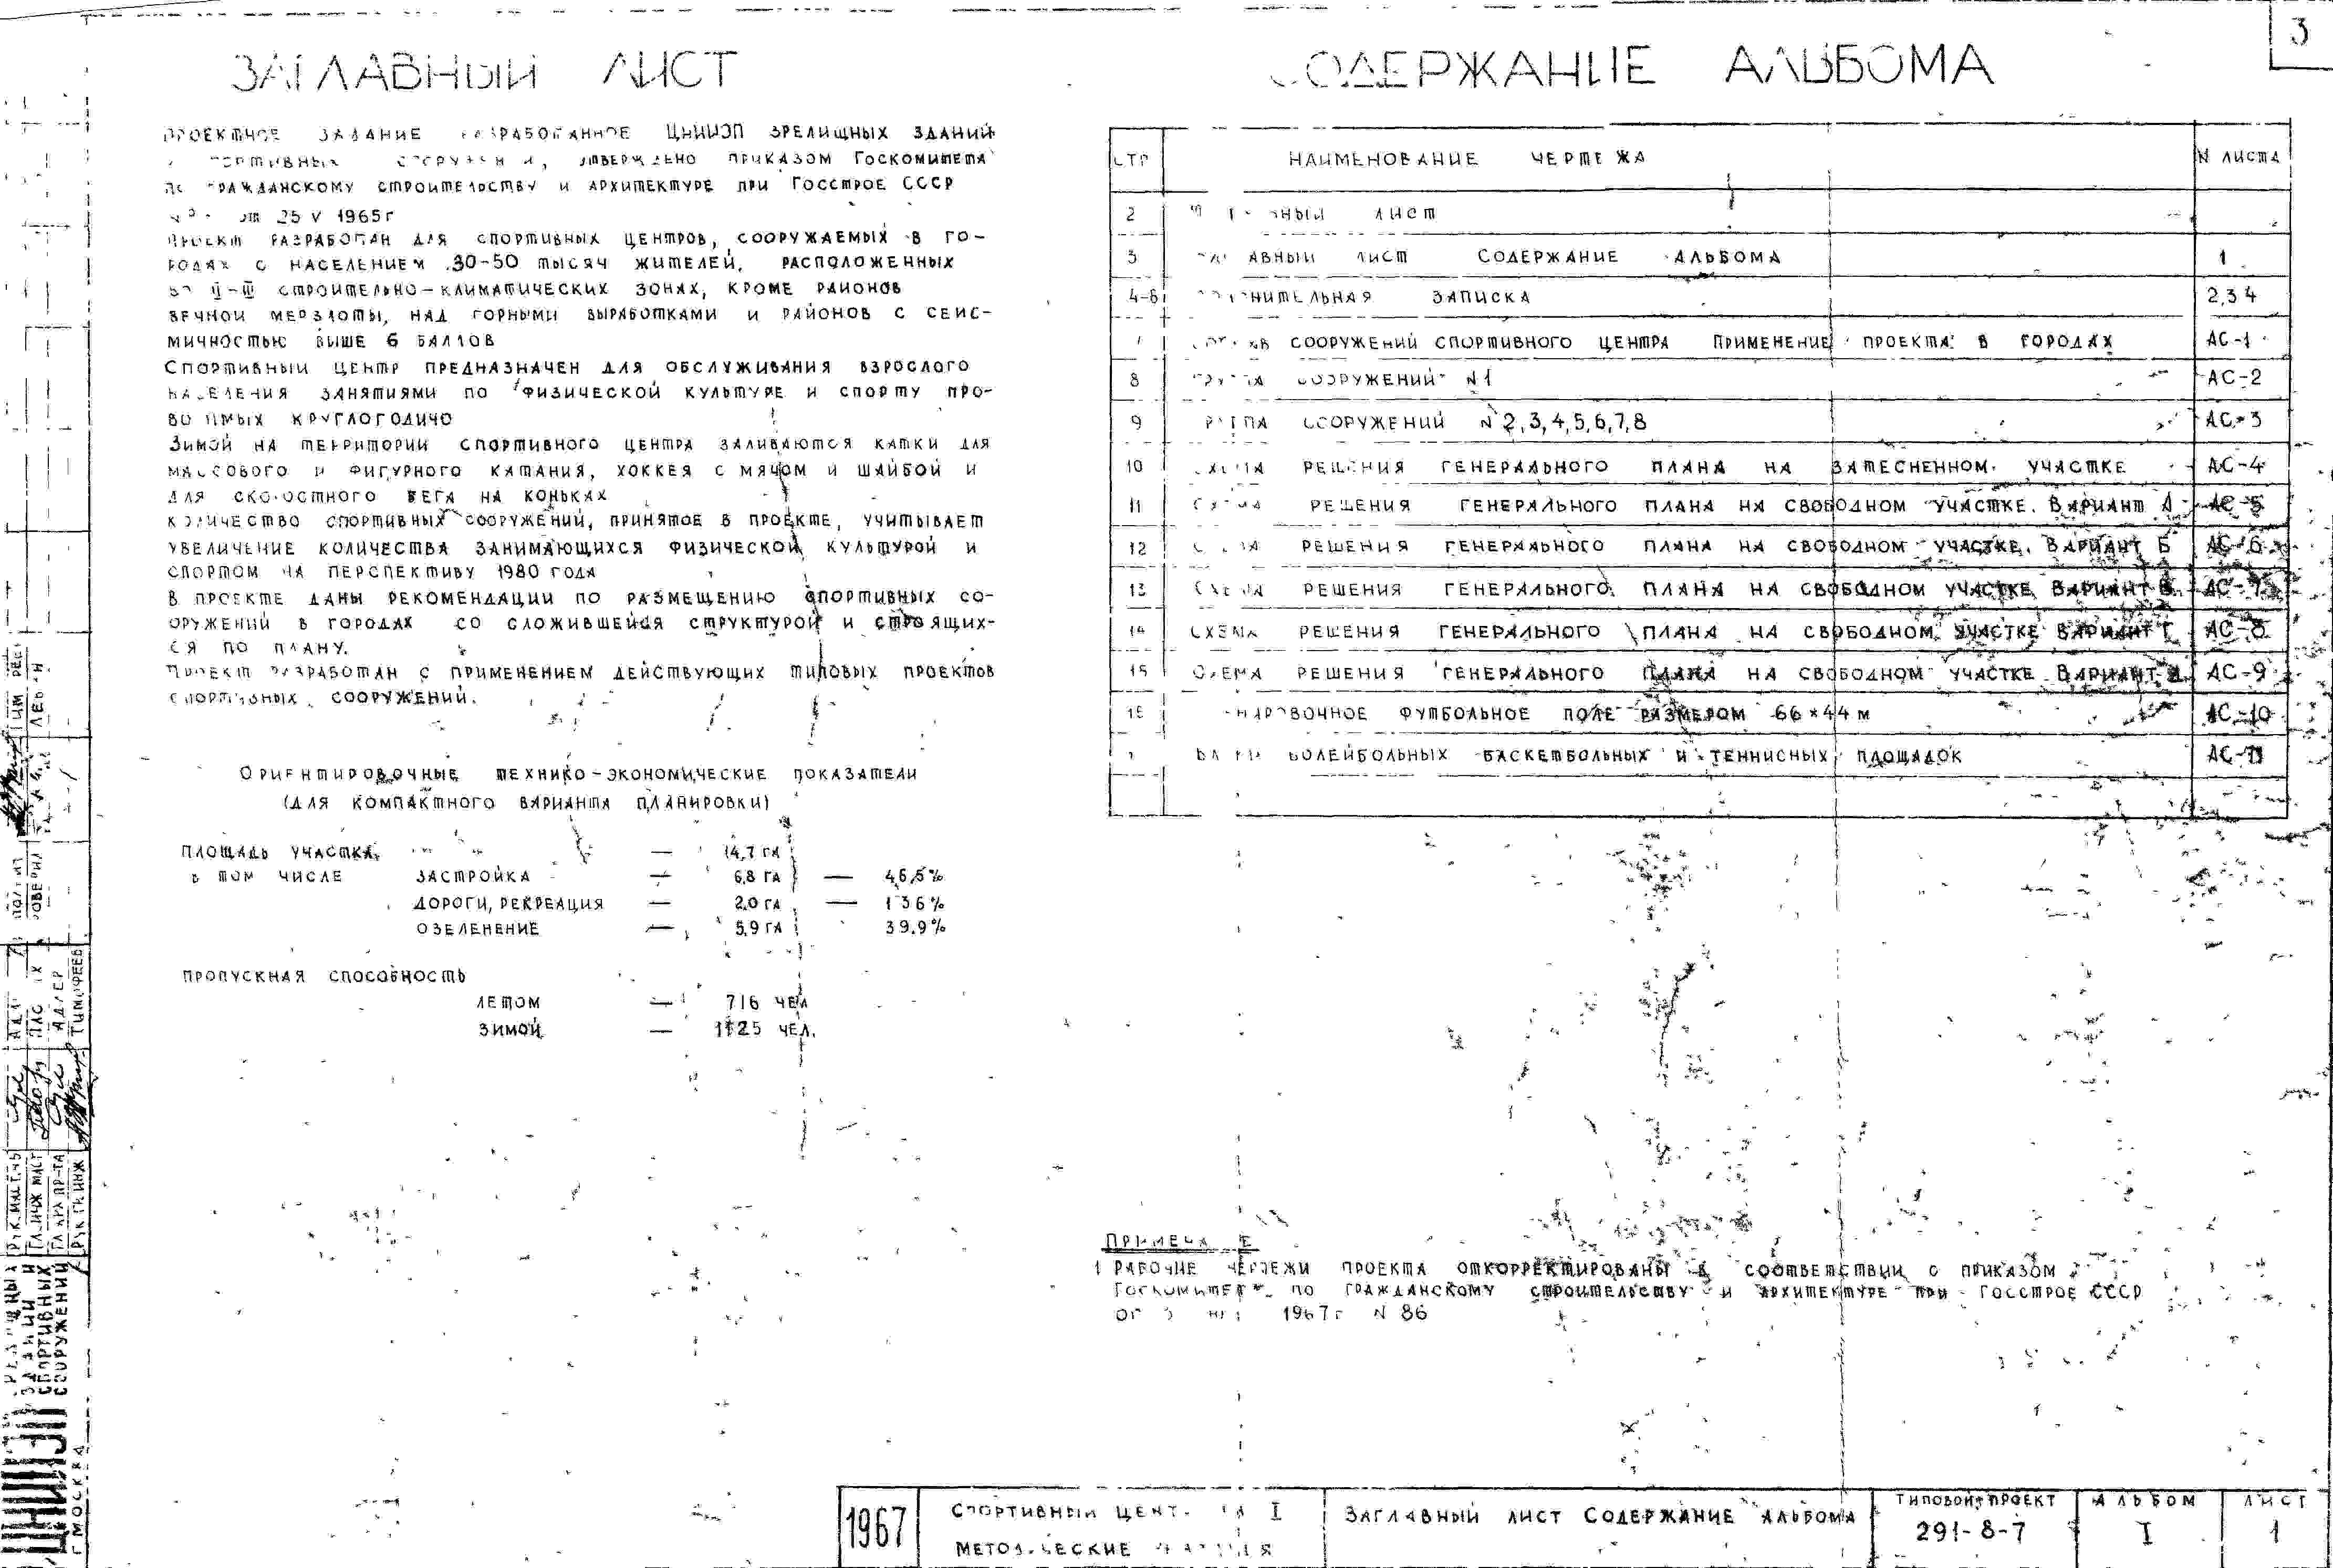 3
ЗАГЛАВНЫЙ ЛИСТ
ПРОЕКТНОЕ ЗАДАНИЕ РАЗРАБОТАННОЕ ЦНИИЭП ЗРЕЛИЩНЫХ ЗДАНИЙ
СПОРТИВНЫХ УТВЕРЖДЕНО ПРИКАЗОМ ГОСКОМИТЕТА
ПО ГРАЖДАНСКОМУ СТРОИТЕЛЬСТВУ И АРХИТЕКТУРЕ ПРИ ГОССТРОЕ СССР
ОТ 25 V 1965г
ПРОЕКТ РАЗРАБОТАН ДЛЯ СПОРТИВНЫХ ЦЕНТРОВ, СООРУЖАЕМЫХ В ГО-
РОДАХ С НАСЕЛЕНИЕМ 30-50 ТЫСЯЧ ЖИТЕЛЕЙ, РАСПОЛОЖЕННЫХ
ВО II-III СТРОИТЕЛЬНО-КЛИМАТИЧЕСКИХ ЗОНАХ, КРОМЕ РАЙОНОВ
ВЕЧНОЙ МЕРЗЛОТЫ, НАД ГОРНЫМИ ВЫРАБОТКАМИ И РАЙОНОВ С СЕЙС-
МИЧНОСТЬЮ ВЫШЕ 6 БАЛЛОВ
СПОРТИВНЫЙ ЦЕНТР ПРЕДНАЗНАЧЕН ДЛЯ ОБСЛУЖИВАНИЯ ВЗРОСЛОГО
НАСЕЛЕНИЯ ЗАНЯТИЯМИ ПО ФИЗИЧЕСКОЙ КУЛЬТУРЕ И СПОРТУ ПРО-
ВОДИМЫХ КРУГЛОГОДИЧО
ЗИМОЙ НА ТЕРРИТОРИИ СПОРТИВНОГО ЦЕНТРА ЗАЛИВАЮТСЯ КАТКИ ДЛЯ
МАССОВОГО И ФИГУРНОГО КАТАНИЯ, ХОККЕЯ С МЯЧОМ И ШАЙБОЙ И
ДЛЯ СКОРОСТНОГО БЕГА НА КОНЬКАХ
КОЛИЧЕСТВО СПОРТИВНЫХ СООРУЖЕНИЙ, ПРИНЯТОЕ В ПРОЕКТЕ, УЧИТЫВАЕТ
УВЕЛИЧЕНИЕ КОЛИЧЕСТВА ЗАНИМАЮЩИХСЯ ФИЗИЧЕСКОЙ КУЛЬТУРОЙ И
СПОРТОМ НА ПЕРСПЕКТИВУ 1980 ГОДА
В ПРОЕКТЕ ДАНЫ РЕКОМЕНДАЦИИ ПО РАЗМЕЩЕНИЮ СПОРТИВНЫХ СО-
ОРУЖЕНИЙ В ГОРОДАХ СО СЛОЖИВШЕЙСЯ СТРУКТУРОЙ И СТРОЯЩИХ-
СЯ ПО ПЛАНУ.
ПРОЕКТ РАЗРАБОТАН С ПРИМЕНЕНИЕМ ДЕЙСТВУЮЩИХ ТИПОВЫХ ПРОЕКТОВ
СПОРТИВНЫХ СООРУЖЕНИЙ.
ОРИЕНТИРОВОЧНЫЕ ТЕХНИКО-ЭКОНОМИЧЕСКИЕ ПОКАЗАТЕЛИ
(ДЛЯ КОМПАКТНОГО ВАРИАНТА ПЛАНИРОВКИ)
ПЛОЩАДЬ УЧАСТКА — 14,7 ГА
В ТОМ ЧИСЛЕ ЗАСТРОЙКА — 6,8 ГА — 46,5%
ДОРОГИ, РЕКРЕАЦИЯ — 2,0 ГА — 13 6%
ОЗЕЛЕНЕНИЕ — 5,9 ГА 39.9%
ПРОПУСКНАЯ СПОСОБНОСТЬ
ЛЕТОМ — 716 ЧЕЛ
ЗИМОЙ — 1125 ЧЕЛ.
СОДЕРЖАНИЕ АЛЬБОМА
СТР НАИМЕНОВАНИЕ ЧЕРТЕЖА N ЛИСТА
2 ЛИСТ
3 ЗАГЛАВНЫЙ ЛИСТ СОДЕРЖАНИЕ АЛЬБОМА 1
4-6 ПОЯСНИТЕЛЬНАЯ ЗАПИСКА 2,3 4
7 СОСТАВ СООРУЖЕНИЙ СПОРТИВНОГО ЦЕНТРА ПРИМЕНЕНИЕ ПРОЕКТА В ГОРОДАХ АС-1
8 ГРУППА СООРУЖЕНИЙ N 1 АС-2
9 ГРУППА СООРУЖЕНИЙ N 2,3,4,5,6,7,8 АС-3
10 СХЕМА РЕШЕНИЯ ГЕНЕРАЛЬНОГО ПЛАНА НА ЗАТЕСНЕННОМ УЧАСТКЕ АС-4
11 СХЕМА РЕШЕНИЯ ГЕНЕРАЛЬНОГО ПЛАНА НА СВОБОДНОМ УЧАСТКЕ. ВАРИАНТ А АС-5
12 СХЕМА РЕШЕНИЯ ГЕНЕРАЛЬНОГО ПЛАНА НА СВОБОДНОМ УЧАСТКЕ. ВАРИАНТ Б АС-6
13 СХЕМА РЕШЕНИЯ ГЕНЕРАЛЬНОГО ПЛАНА НА СВОБОДНОМ УЧАСТКЕ ВАРИАНТ В АС-7
14 СХЕМА РЕШЕНИЯ ГЕНЕРАЛЬНОГО ПЛАНА НА СВОБОДНОМ УЧАСТКЕ ВАРИАНТ Г АС-8
15 СХЕМА РЕШЕНИЯ ГЕНЕРАЛЬНОГО ПЛАНА НА СВОБОДНОМ УЧАСТКЕ ВАРИАНТ Д АС-9
16 ТРЕНИРОВОЧНОЕ ФУТБОЛЬНОЕ ПОЛЕ РАЗМЕРОМ 66×44 м АС-10
ВОЛЕЙБОЛЬНЫХ БАСКЕТБОЛЬНЫХ И ТЕННИСНЫХ ПЛОЩАДОК АС-11
ПРИМЕЧАНИЕ
1 РАБОЧИЕ ЧЕРТЕЖИ ПРОЕКТА ОТКОРРЕКТИРОВАНЫ В СООТВЕТСТВИИ С ПРИКАЗОМ
ГОСКОМИТЕТА ПО ГРАЖДАНСКОМУ СТРОИТЕЛЬСТВУ И АРХИТЕКТУРЕ ПРИ ГОССТРОЕ СССР
1967г N 86
РУК.МАСТ.
ГЛ.ИНЖ МАСТ
ГЛ АРХ ПР-ТА АДЛЕР
РУК ГР.ИНЖ ТИМОФЕЕВ
ЦНИИЭП ЗРЕЛИЩНЫХ
ЗДАНИЙ И
СПОРТИВНЫХ
СООРУЖЕНИЙ
Г МОСКВА
1967
СПОРТИВНЫЙ ЦЕНТР I
МЕТОДИЧЕСКИЕ
ЗАГЛАВНЫЙ ЛИСТ СОДЕРЖАНИЕ АЛЬБОМА
ТИПОВОЙ ПРОЕКТ
291-8-7
АЛЬБОМ
I
ЛИСТ
1